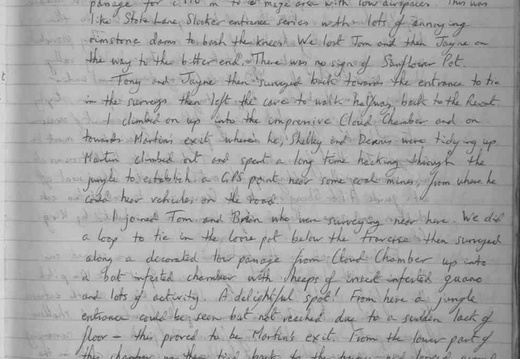 passage for c.150 m to a maze area with low airspaces. This was
like Stoke Lane Slocker entrance series with lots of annoying
rimstone dams to bash the knees. We lost Tom and then Jayne on
the way to the bitter end. There was no sign of Sunflower Pot.
Tony and Jayne then surveyed back towards the entrance to tie
in the surveys then left the cave to walk halfway back to the Resort
I climbed on up into the impressive Cloud Chamber and on
towards Martin's exit where he, Shelley and Dennis were tidying up.
Martin climbed out and spent a long time hacking through the
jungle to establish a GPS point near some coal mines, from where he
could hear vehicles on the road.
I joined Tom and Brian who were surveying near here. We did
a loop to tie in the lone pot below the traverse then surveyed
along a decorated low passage from Cloud Chamber up into
a bat infested chamber with heaps of insect infested guano
and lots of activity. A delightful spot! From here a jungle
entrance could be seen but not reached due to a sudden lack of
floor - this proved to be Martin's exit. From the lower part of
this chamber we tied back to the